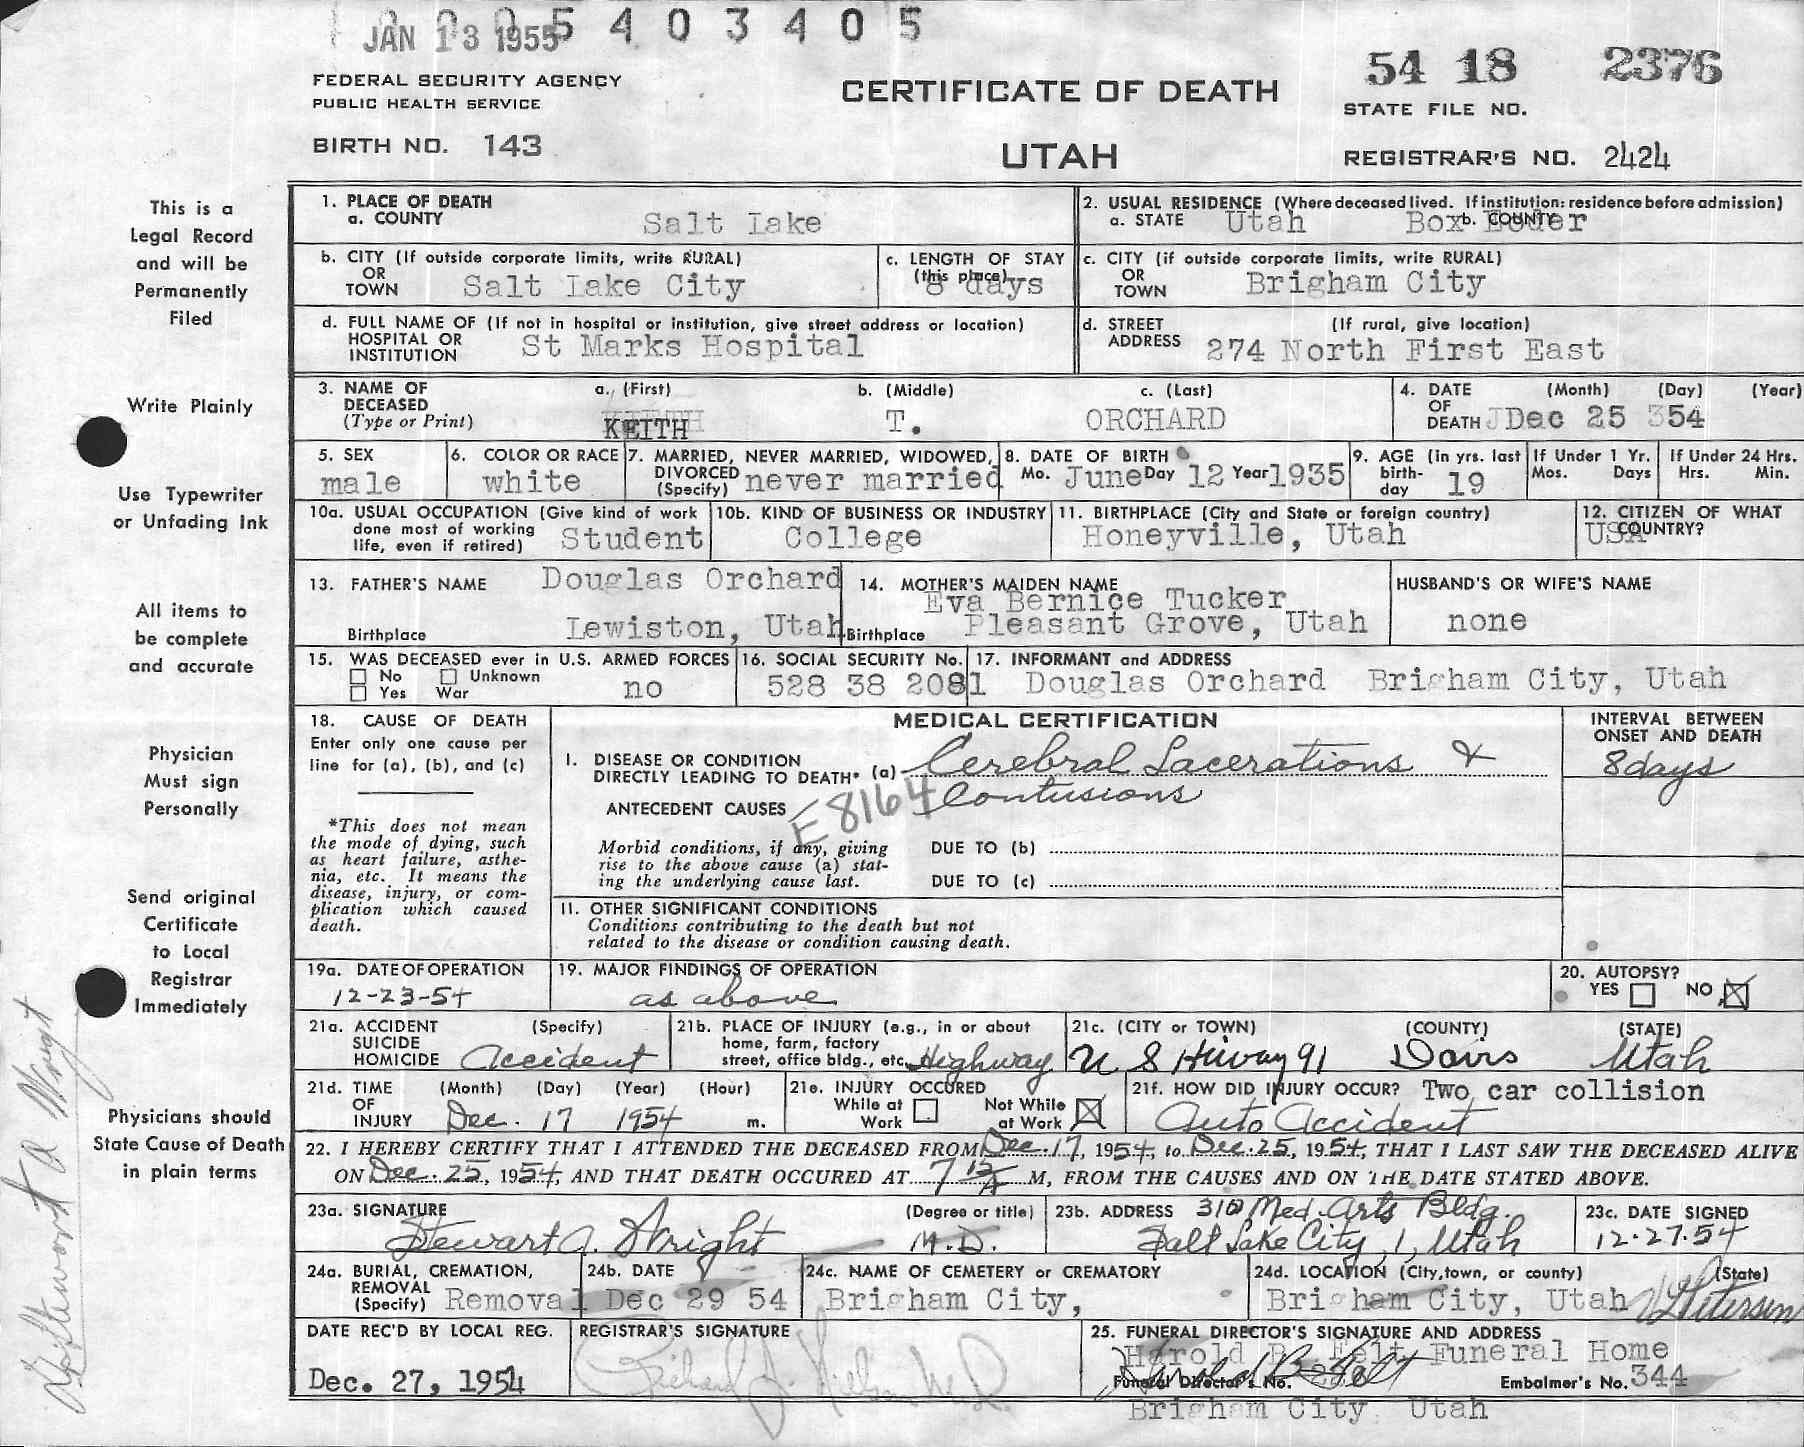 JAN 13 1955
5 4 0 3 4 0 5
54 18 2376
FEDERAL SECURITY AGENCY
PUBLIC HEALTH SERVICE
CERTIFICATE OF DEATH
STATE FILE NO.
BIRTH NO. 143
UTAH
REGISTRAR'S NO. 2424
This is a
Legal Record
and will be
Permanently
Filed
Write Plainly
Use Typewriter
or Unfading Ink
All items to
be complete
and accurate
Physician
Must sign
Personally
Send original
Certificate
to Local
Registrar
Immediately
Physicians should
State Cause of Death
in plain terms
1. PLACE OF DEATH
a. COUNTY Salt Lake
2. USUAL RESIDENCE (Where deceased lived. If institution: residence before admission)
a. STATE Utah b. COUNTY Box Elder
b. CITY (If outside corporate limits, write RURAL)
OR
TOWN Salt Lake City
c. LENGTH OF STAY
(this place) 8 days
c. CITY (if outside corporate limits, write RURAL)
OR
TOWN Brigham City
d. FULL NAME OF (If not in hospital or institution, give street address or location)
HOSPITAL OR
INSTITUTION St Marks Hospital
d. STREET (If rural, give location)
ADDRESS 274 North First East
3. NAME OF
DECEASED
(Type or Print)
a. (First) b. (Middle) c. (Last)
KEITH T. ORCHARD
4. DATE (Month) (Day) (Year)
OF
DEATH Dec 25 54
5. SEX
male
6. COLOR OR RACE
white
7. MARRIED, NEVER MARRIED, WIDOWED,
DIVORCED
(Specify) never married
8. DATE OF BIRTH
Mo. June Day 12 Year 1935
9. AGE (in yrs. last
birth-
day 19
If Under 1 Yr.
Mos. Days
If Under 24 Hrs.
Hrs. Min.
10a. USUAL OCCUPATION (Give kind of work
done most of working
life, even if retired) Student
10b. KIND OF BUSINESS OR INDUSTRY
College
11. BIRTHPLACE (City and State or foreign country)
Honeyville, Utah
12. CITIZEN OF WHAT
COUNTRY? USA
13. FATHER'S NAME Douglas Orchard
Birthplace Lewiston, Utah
14. MOTHER'S MAIDEN NAME
Eva Bernice Tucker
Birthplace Pleasant Grove, Utah
HUSBAND'S OR WIFE'S NAME
none
15. WAS DECEASED ever in U.S. ARMED FORCES
No Unknown
Yes War no
16. SOCIAL SECURITY No.
528 38 2081
17. INFORMANT and ADDRESS
Douglas Orchard Brigham City, Utah
18. CAUSE OF DEATH
Enter only one cause per
line for (a), (b), and (c)
*This does not mean
the mode of dying, such
as heart failure, asthe-
nia, etc. It means the
disease, injury, or com-
plication which caused
death.
MEDICAL CERTIFICATION
INTERVAL BETWEEN
ONSET AND DEATH
I. DISEASE OR CONDITION
DIRECTLY LEADING TO DEATH* (a) Cerebral Lacerations &
Contusions
8 days
ANTECEDENT CAUSES
E8164
Morbid conditions, if any, giving
rise to the above cause (a) stat-
ing the underlying cause last.
DUE TO (b)
DUE TO (c)
II. OTHER SIGNIFICANT CONDITIONS
Conditions contributing to the death but not
related to the disease or condition causing death.
19a. DATE OF OPERATION
12-23-54
19. MAJOR FINDINGS OF OPERATION
as above
20. AUTOPSY?
YES NO
21a. ACCIDENT (Specify)
SUICIDE
HOMICIDE Accident
21b. PLACE OF INJURY (e.g., in or about
home, farm, factory
street, office bldg., etc. Highway
21c. (CITY or TOWN) (COUNTY) (STATE)
U S Hiway 91 Davis Utah
21d. TIME (Month) (Day) (Year) (Hour)
OF
INJURY Dec. 17 1954 m.
21e. INJURY OCCURED
While at Work Not While at Work
21f. HOW DID INJURY OCCUR? Two car collision
Auto Accident
22. I HEREBY CERTIFY THAT I ATTENDED THE DECEASED FROM Dec. 17, 1954, to Dec. 25, 1954, THAT I LAST SAW THE DECEASED ALIVE
ON Dec. 25, 1954, AND THAT DEATH OCCURED AT 7 15 A M, FROM THE CAUSES AND ON THE DATE STATED ABOVE.
23a. SIGNATURE (Degree or title)
Stewart A. Wright M.D.
23b. ADDRESS 310 Med. Arts Bldg.
Salt Lake City, 1, Utah
23c. DATE SIGNED
12-27-54
24a. BURIAL, CREMATION,
REMOVAL
(Specify) Removal
24b. DATE
Dec 29 54
24c. NAME OF CEMETERY or CREMATORY
Brigham City,
24d. LOCATION (City, town, or county) (State)
Brigham City, Utah
DATE REC'D BY LOCAL REG.
Dec. 27, 1954
REGISTRAR'S SIGNATURE
25. FUNERAL DIRECTOR'S SIGNATURE AND ADDRESS
Harold B. Felt Funeral Home
Funeral Director's No. Embalmer's No. 344
Brigham City Utah